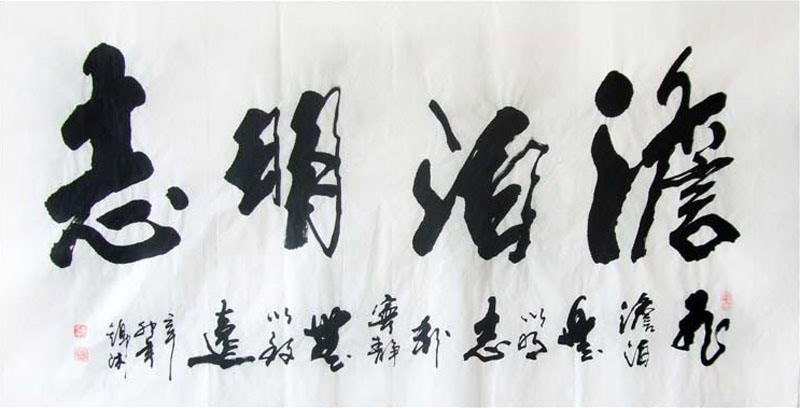 澹泊明志
非澹泊無以明志非寧静無以致遠
辛卯年